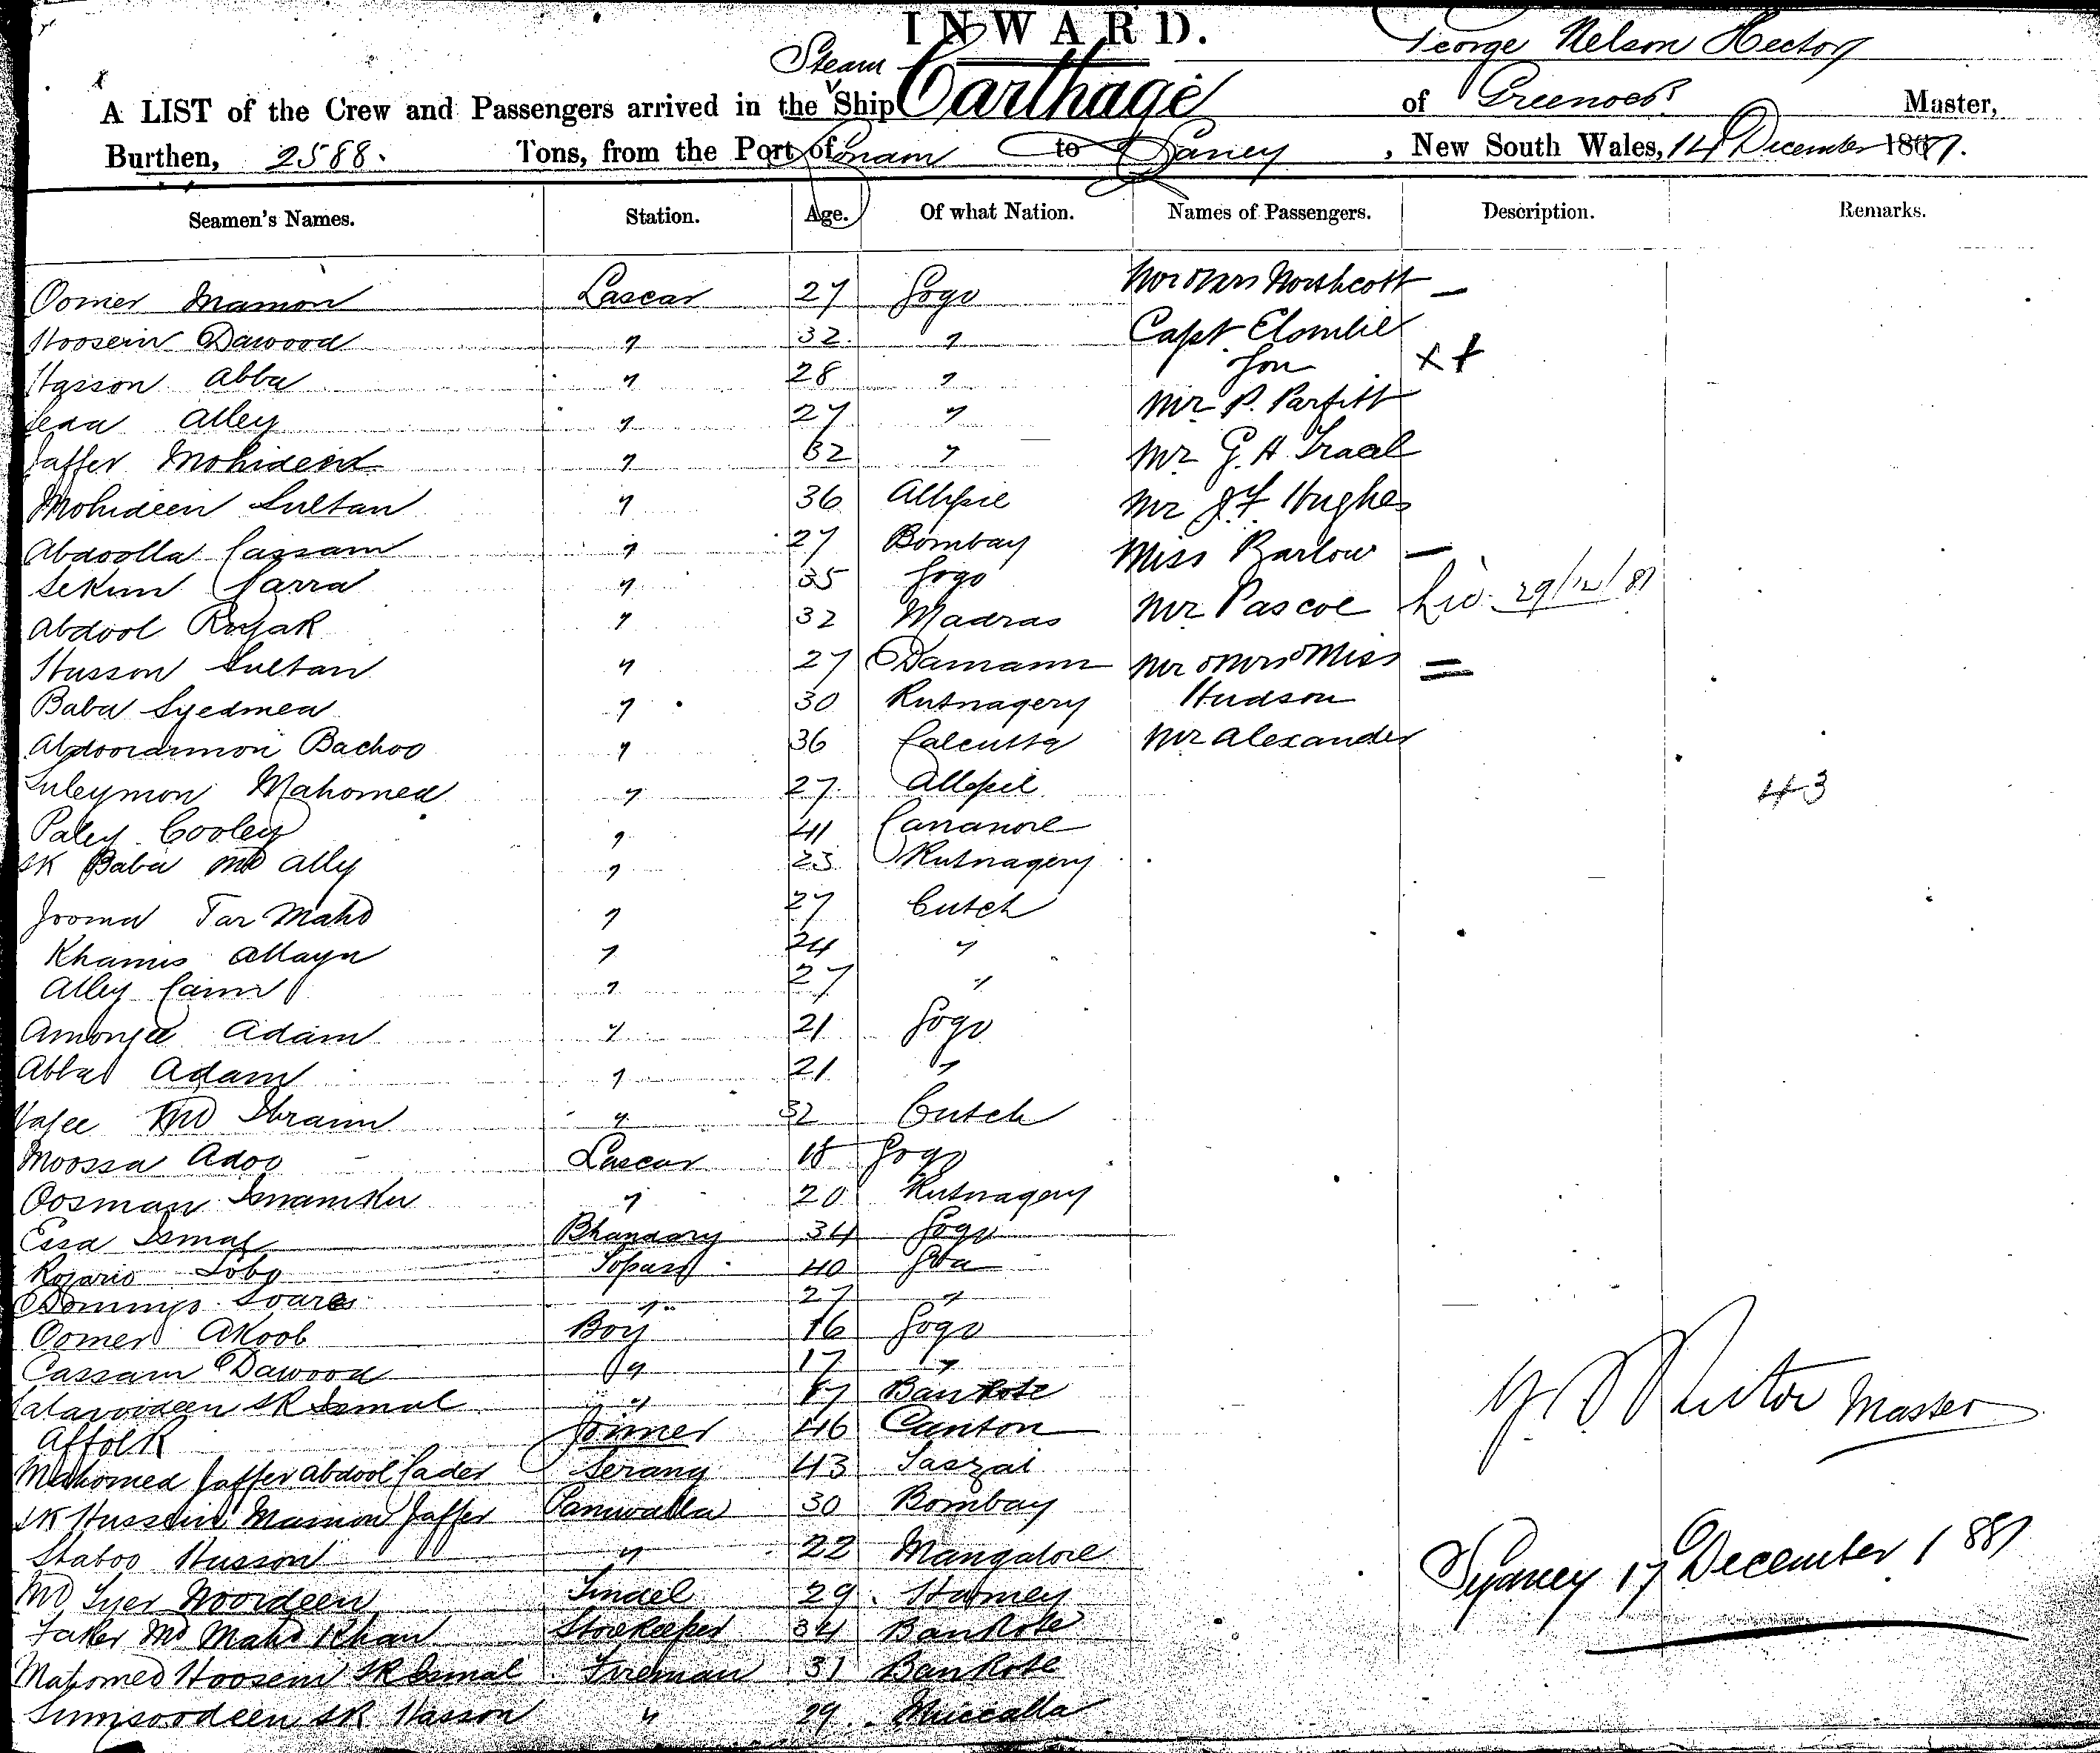 INWARD.
George Nelson Hector
Steam
A LIST of the Crew and Passengers arrived in the Ship Carthage of Greenock Master,
Burthen, 2588. Tons, from the Port of to Sydney, New South Wales, 14 December 1887.
Seamen's Names. Station. Age. Of what Nation. Names of Passengers. Description. Remarks.
Oomer Mamon Lascar 27 Gogo Mr & Mrs Northcott —
Hoosein Dawood " 32 " Capt Elombie
Hasson Abba " 28 " Son
Alley " 27 " Mr P. Parfitt
Jaffer Mohideen " 32 " Mr G. H
Mohideen Sultan " 36 Allepie Mr J. F. Hughes
Abdoolla Cassam " 27 Bombay Miss Barlow —
Sekun " 35 Gogo
Abdool " 32 Madras Mr Pascoe 29/12/87
Husson Sultan " 27 Damaun Mr & Mrs & Miss =
Baba Syedmea " 30 Rutnagery Hudson
Bachoo " 36 Calcutta Mr Alexander
Suleymon Mahomed " 27 Allepie 43
Paley Cooley " 41 Cananore
SK Baba Md Ally " 23 Rutnagery
Jooma Tar Mahd " 27 Cutch
Khamis " 24 "
Alley " 27 "
Amonjee Adam " 21 Gogo
Abba Adam " 21 "
Md Ibraim " 32 Cutch
Moossa Adoo Lascar 18 Gogo
Oosman " 20 Rutnagery
Essa Ismal Bhandary 34 Gogo
Rozario Lobo Topass 40 Goa
Domingo Soares " 27 "
Oomer Akoob Boy 16 Gogo
Cassam Dawood " 17 "
SK Ismal " 17 Bankote
Joiner 46 Canton
Mahomed Jaffer Abdool Cader Serang 43
SK Hussein Mamon Jaffer Paniwalla 30 Bombay
Husson " 22 Mangalore
Md Syer Noordeen Tindel 29
Faker Md Mahd Khan Storekeeper 34 Bankote
Mahomed Hoosein SK Ismal Fireman 31 Bankote
Sumsoodeen SK Hasson " 29
Hector Master
Sydney 17 December 1887